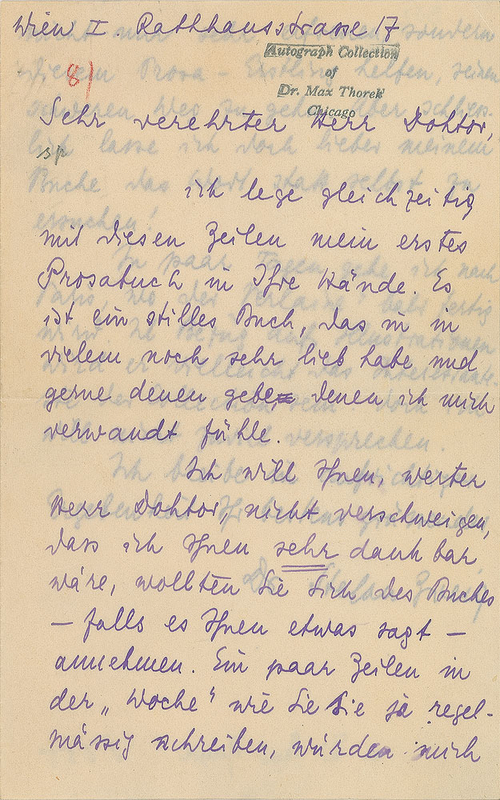 Wien I. Rathhausstrasse 17
Autograph Collection
of
Dr. Max Thorek
Chicago
8)
Sehr verehrter Herr Doktor,
ich lege gleichzeitig
mit diesen Zeilen mein erstes
Prosabuch in Ihre Hände. Es
ist ein stilles Buch, das ich in
vielem noch sehr lieb habe und
gerne denen gebe, denen ich mich
verwandt fühle.
Ich will Ihnen, werter
Herr Doktor, nicht verschweigen,
dass ich Ihnen sehr dankbar
wäre, wollten Sie sich des Buches
— falls es Ihnen etwas sagt —
annehmen. Ein paar Zeilen in
der „Woche" wie Sie sie ja regel-
mässig schreiben, würden mich